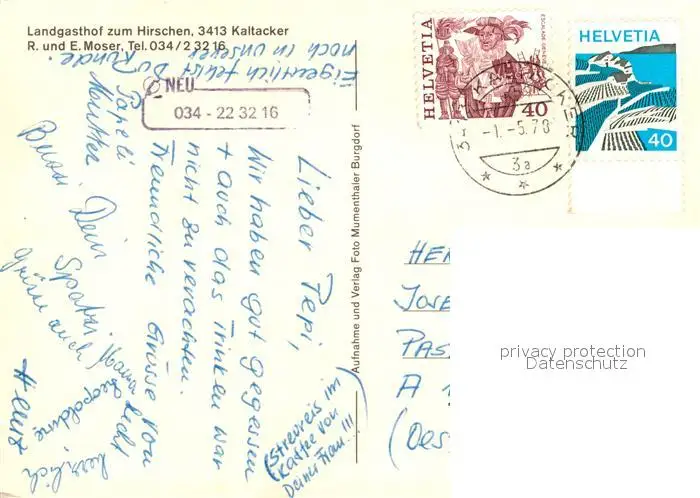 Landgasthof zum Hirschen, 3413 Kaltacker
R. und E. Moser, Tel. 034/2 32 16
NEU
034 - 22 32 16
Eigentlich fehlst Du
noch in unserer
Runde.
Lieber Pepi,
Wir haben gut gegessen
+ auch das Trinken war
nicht zu verachten.
Freundliche Grüsse von
Papeli
Mutter
Bussi Dein Spatzi
Grüsse auch Mama
Leopoldine
Heinz
herzlich
(Streureis im
Kaffee von
Deiner Frau...!!!)
Aufnahme und Verlag Foto Mumenthaler Burgdorf
HELVETIA
ESCALADE GENÈVE
40
HELVETIA
40
-1.-5.78
3a
HER
JOSE
PAS
A 1
(Oes
privacy protection
Datenschutz